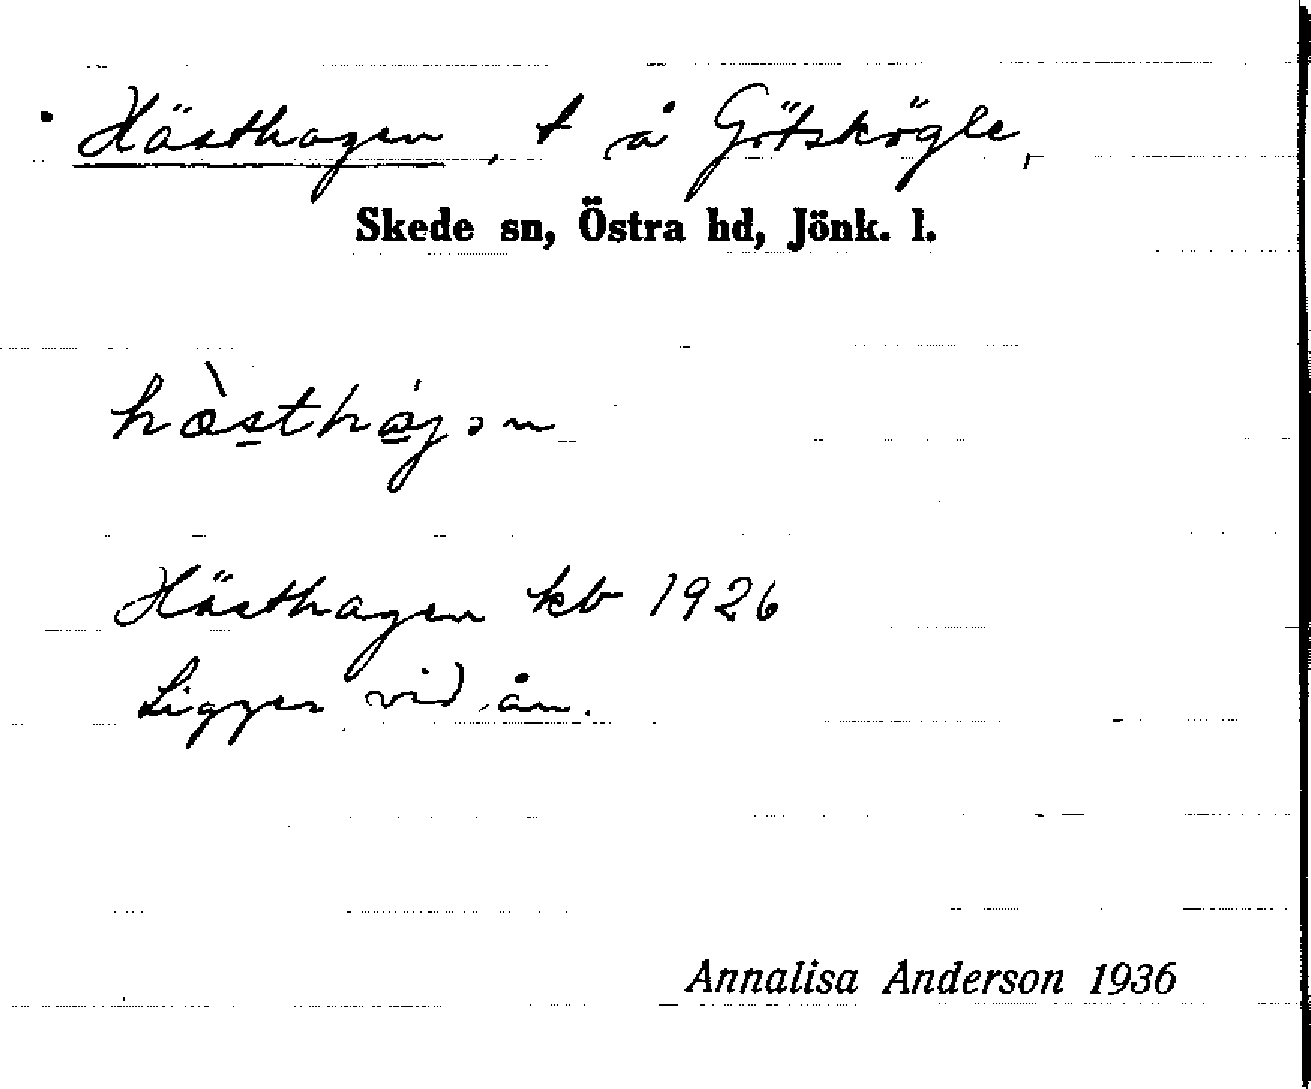 Hästhagen, t å Götskögle,
Skede sn, Östra hd, Jönk. l.
hæ̀sthájən
Hästhagen kb 1926
Ligger vid ån.
Annalisa Anderson 1936